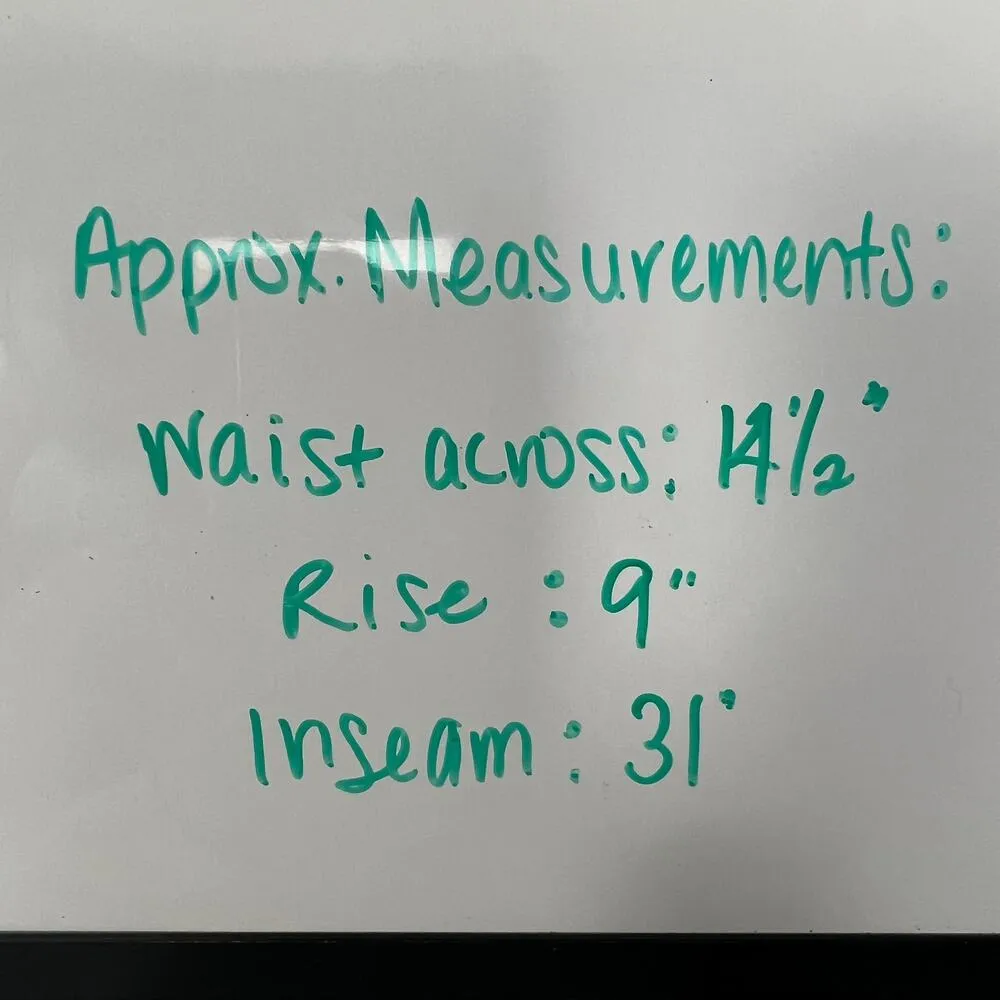 Approx. Measurements:
Waist across: 14 1/2"
Rise : 9"
Inseam : 31"